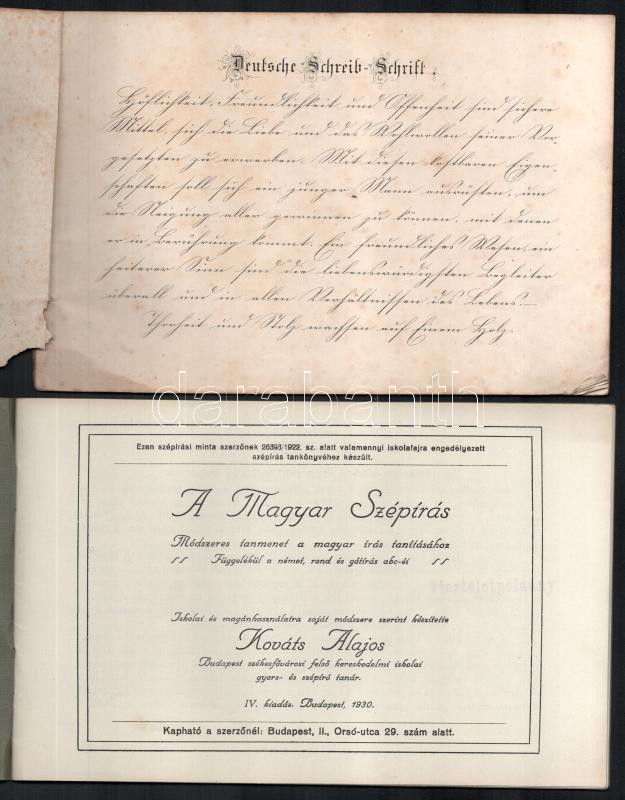 Deutsche Schreib-Schrift.
Höflichkeit, Freundlichkeit und Offenheit sind sichere
Mittel, sich die Liebe und das Wohlwollen seiner Vor-
gesetzten zu erwerben. Mit diesen kostbaren Eigen-
schaften soll sich ein junger Mann ausrüsten, um
die Neigung aller gewinnen zu können, mit denen
er in Berührung kommt. Ein freundliches Wesen, ein
heiterer Sinn sind die liebenswürdigsten Begleiter
überall und in allen Verhältnissen des Lebens.—
Thorheit und Stolz wachsen auf Einem Holz.
darabanth
Ezen szépírási minta szerzőnek 26393/1922. sz. alatt valamennyi iskolafajra engedélyezett
szépírás tankönyvéhez készült.
A Magyar Szépírás
Módszeres tanmenet a magyar írás tanításához
Függelékül a német, rond és gótírás abc-éi
Tiszteletpéldány
Iskolai és magánhasználatra saját módszere szerint készítette
Kováts Alajos
Budapest székesfővárosi felső kereskedelmi iskolai
gyors- és szépíró tanár.
IV. kiadás. Budapest, 1930.
Kapható a szerzőnél: Budapest, II., Orsó-utca 29. szám alatt.